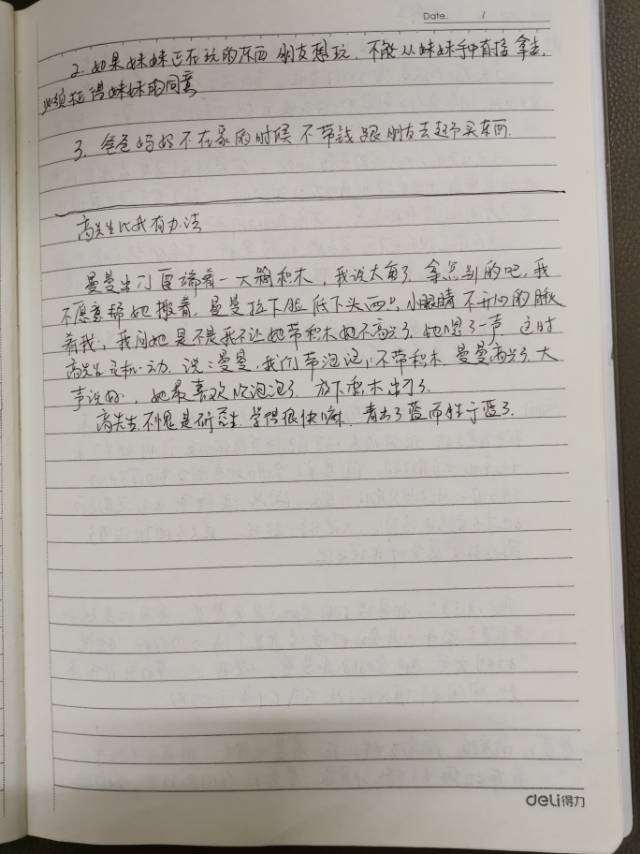 Date. /
2. 如果妹妹正在玩的东西 朋友想玩, 不能从妹妹手中直接拿走,
必须征得妹妹的同意
3. 爸爸妈妈不在家的时候 不带钱跟朋友去超市买东西.
高先生比我有办法
曼曼出门要端着一大箱积木, 我说大重了 拿点别的吧, 我
不愿意帮她搬着. 曼曼拉下脸低下头 小眼睛不开心的瞅
着我, 我问她是不是我不让她带积木她不高兴了. 她嗯了一声 这时
高先生 说: 曼曼, 我们带泡泡, 不带积木. 曼曼高兴了 大
声说好, 她最喜欢吹泡泡了. 放下积木出门了.
高先生不愧是研究生 学得很快嘛. 青出于蓝而胜于蓝了.
deli得力